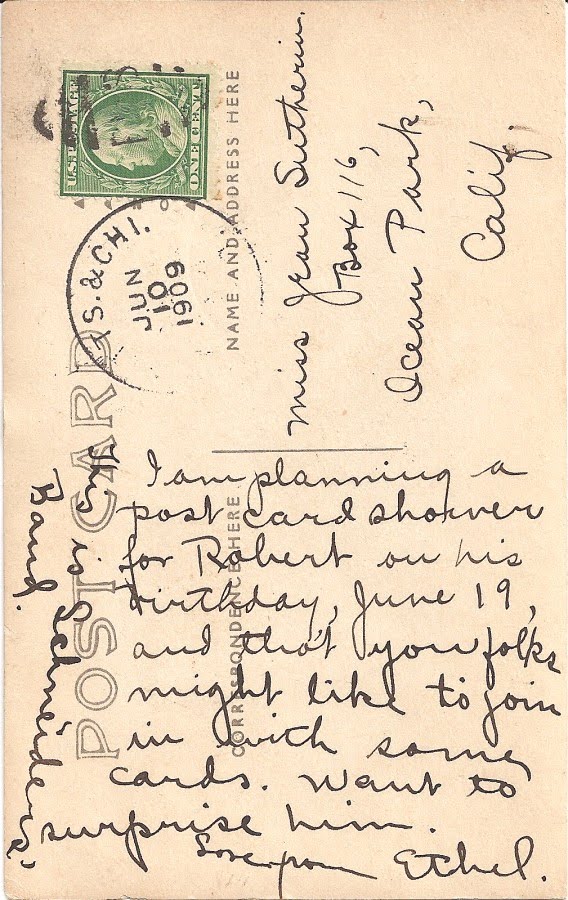 U.S. POSTAGE
ONE CENT
S. & CHI.
JUN
10
1909
POST CARD
NAME AND ADDRESS HERE
CORRESPONDENCE HERE
Miss Jean Sutherin.
Box 116,
Ocean Park,
Calif.
I am planning a
post card shower
for Robert on his
birthday, June 19,
and tho't you folks
might like to join
in with some
cards. Want to
surprise him.
Love from Ethel.
This is Schneider's
Band.